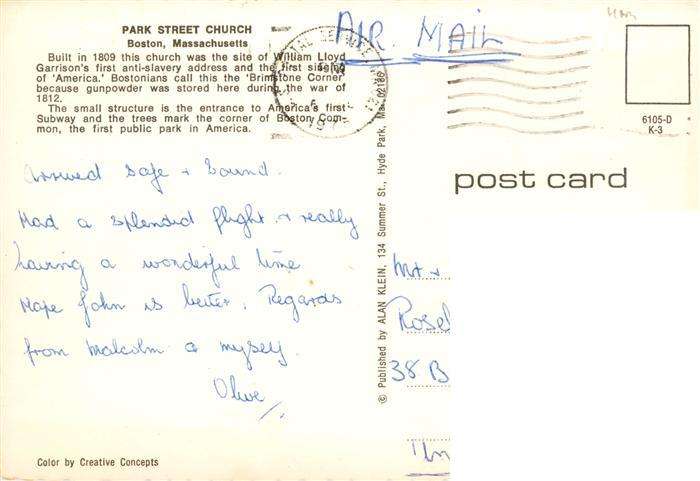 PARK STREET CHURCH
Boston, Massachusetts
Built in 1809 this church was the site of William Lloyd
Garrison's first anti-slavery address and the first singing
of 'America.' Bostonians call this the 'Brimstone Corner'
because gunpowder was stored here during the war of
1812.
The small structure is the entrance to America's first
Subway and the trees mark the corner of Boston Com-
mon, the first public park in America.
AIR MAIL
6105-D
K-3
post card
Arrived safe + sound.
Had a splendid flight + really
having a wonderful time
Hope John is better. Regards
from Malcolm & myself.
Olive
Mr +
38 B
© Published by ALAN KLEIN, 134 Summer St., Hyde Park, Ma. 02136
Color by Creative Concepts